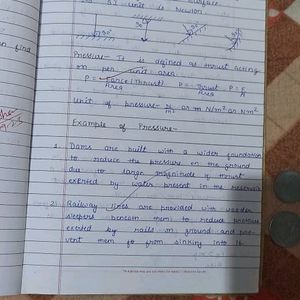 surface.
as unit is Newton
90°
30°
Pressure- It is defined as thrust acting
on per unit area
P = Force (Thrust) / Area P = Thrust / Area P = F / A
Unit of pressure- N/m² or N/m² or Nm²
Example of Pressure-
1. Dams are built with a wider foundation
to reduce the pressure on the ground
due to large magnitude of thrust
exerted by water present in the reservoir
2. Railway lines are provided with wooden
sleepers beneath them to reduce pressure
exerted by rails on ground and pre-
vent them from sinking into it